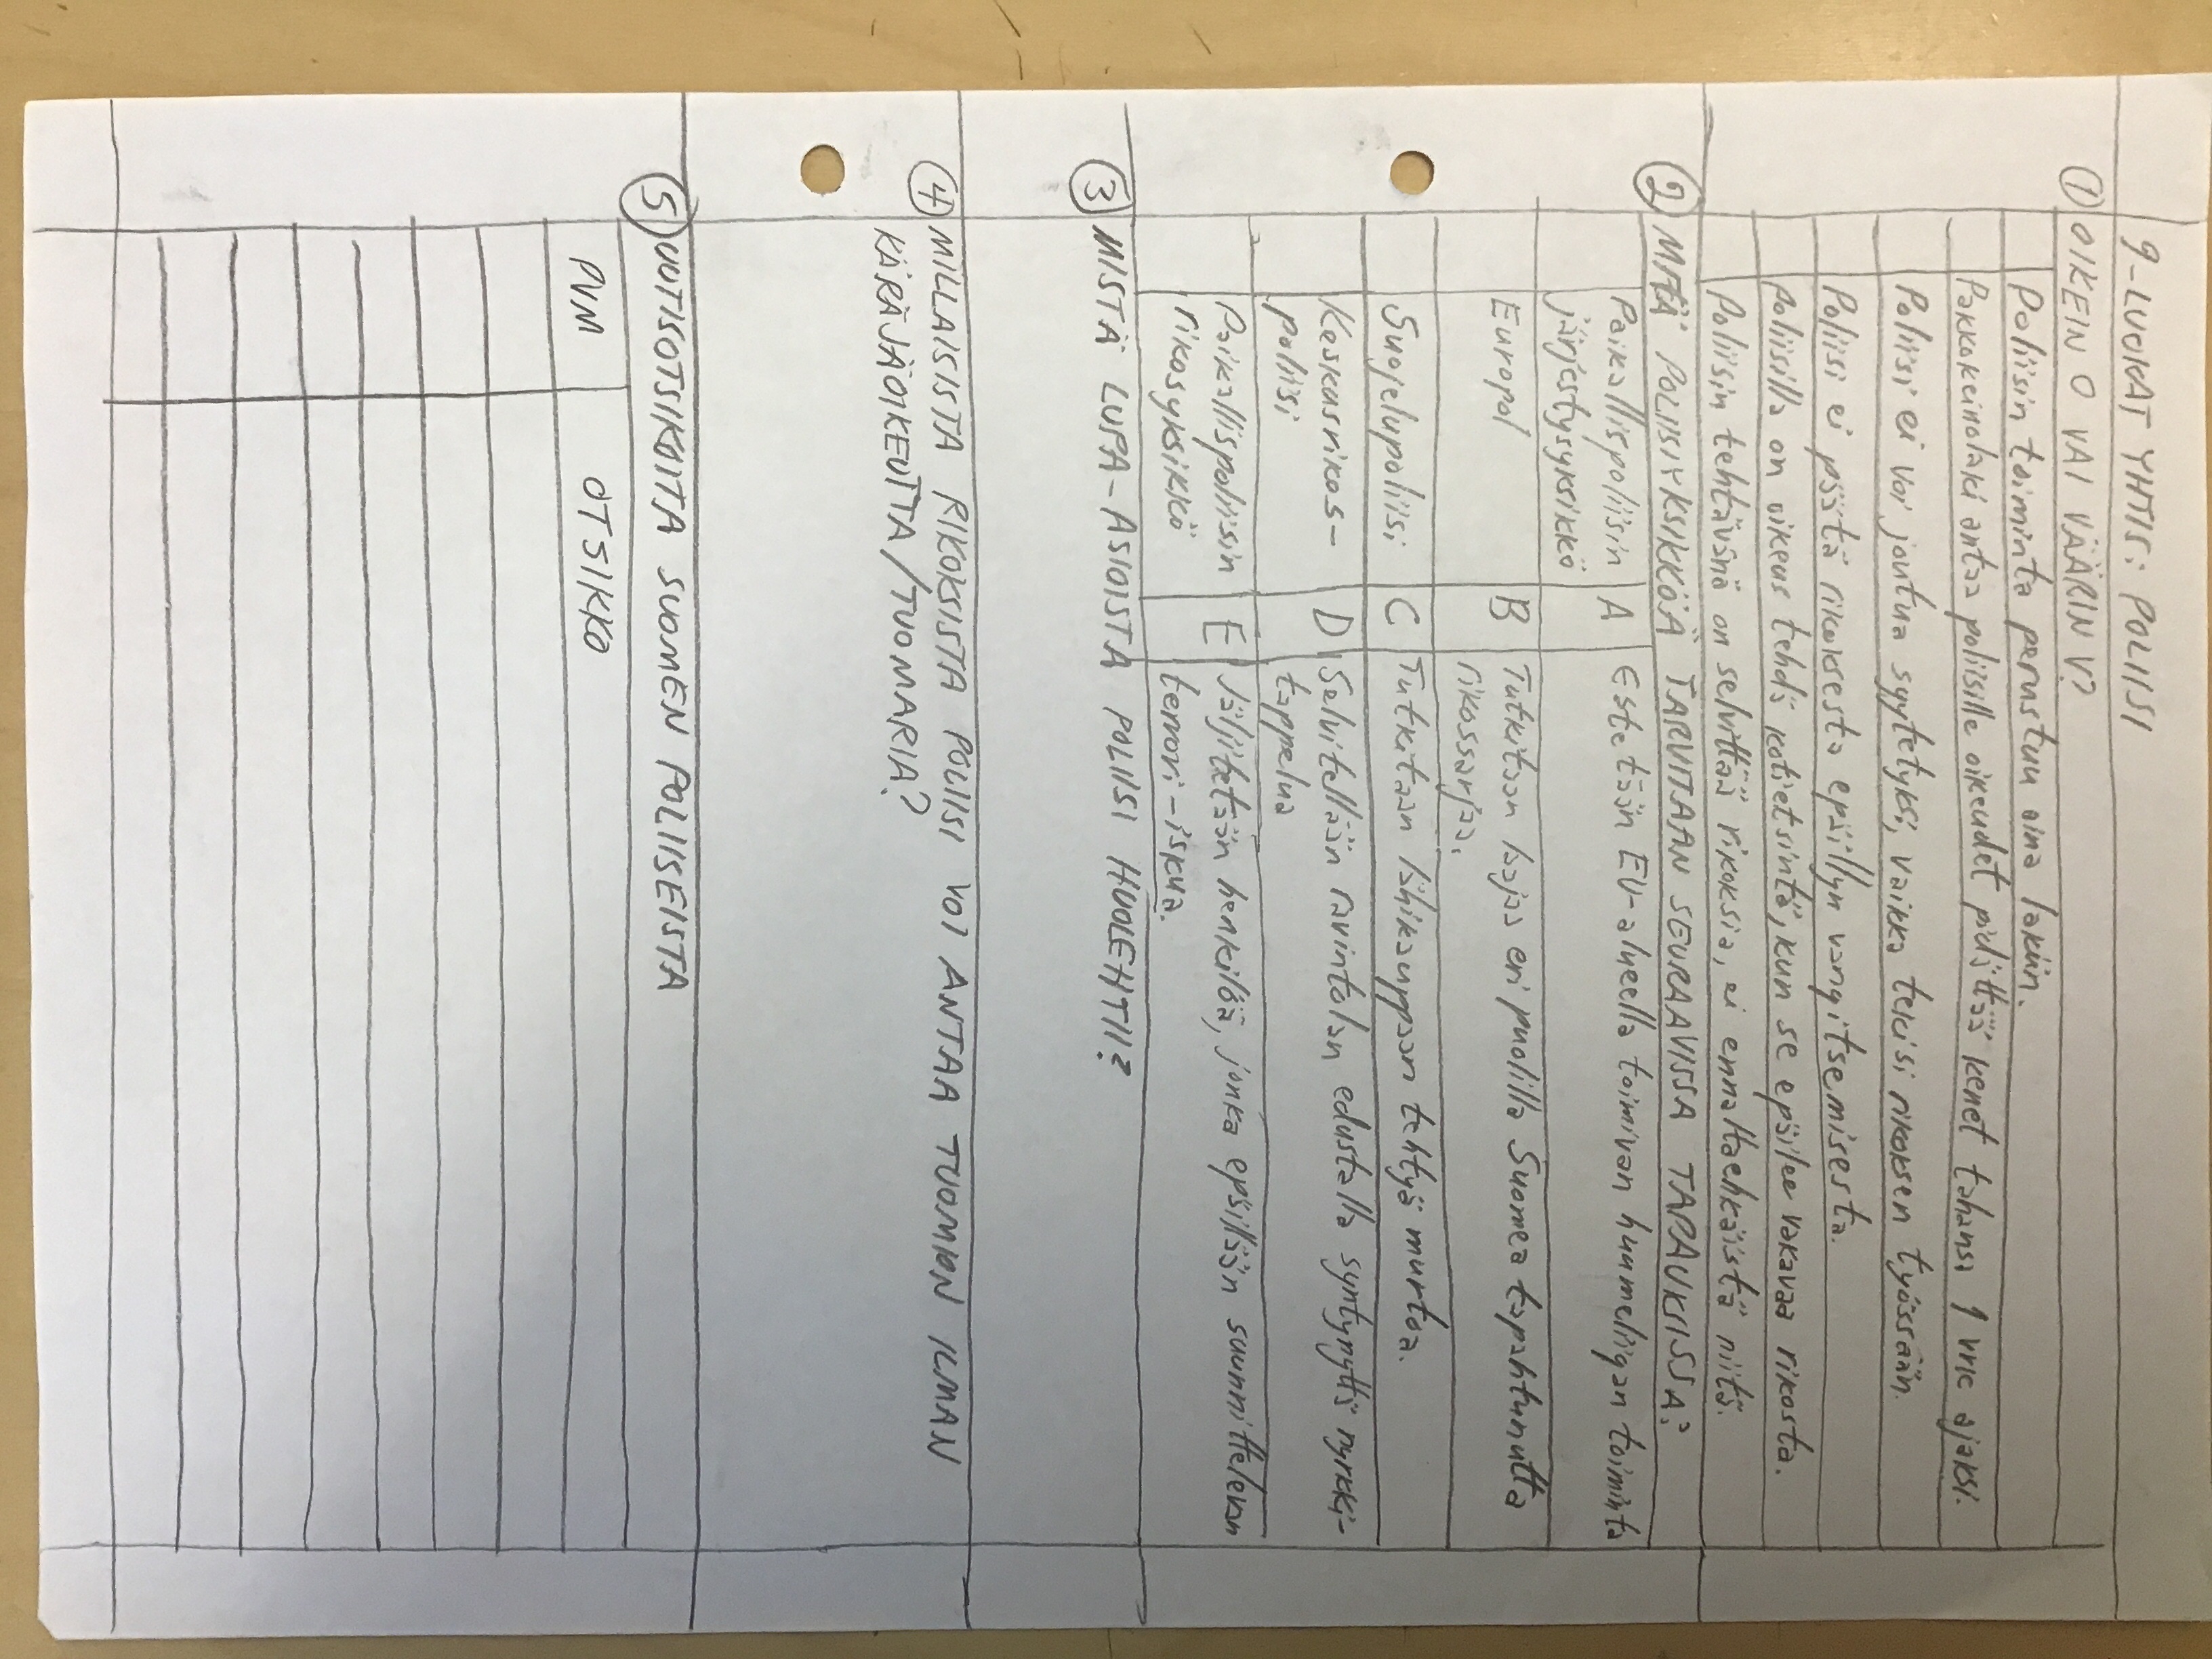 9-LUOKAT YHTIS: POLIISI
① OIKEIN O VAI VÄÄRIN V?
Poliisin toiminta perustuu aina lakiin.
Pakkokeinolaki antaa poliisille oikeudet pidättää kenet tahansa 1 vrk ajaksi.
Poliisi ei voi joutua syytetyksi, vaikka tekisi rikoksen työssään.
Poliisi ei päätä rikoksesta epäillyn vangitsemisesta.
Poliisilla on oikeus tehdä kotietsintä, kun se epäilee vakavaa rikosta.
Poliisin tehtävänä on selvittää rikoksia, ei ennaltaehkäistä niitä.
② MITÄ POLIISIYKSIKKÖÄ TARVITAAN SEURAAVISSA TAPAUKSISSA?
Paikallispoliisin A Estetään EU-alueella toimivan huumeliigan toiminta
järjestysyksikkö
Europol B Tutkitaan laajaa eri puolilla Suomea tapahtunutta
rikossarjaa.
Suojelupoliisi C Tutkitaan lähikauppaan tehtyä murtoa.
Keskusrikos- D Selvitellään ravintolan edustalla syntynyttä nyrkki-
poliisi tappelua
Paikallispoliisin E Jäljitetään henkilöä, jonka epäillään suunnittelevan
rikosyksikkö terrori-iskua.
③ MISTÄ LUPA-ASIOISTA POLIISI HUOLEHTII?
④ MILLAISISTA RIKOKSISTA POLIISI VOI ANTAA TUOMION ILMAN
KÄRÄJÄOIKEUTTA/TUOMARIA?
⑤ UUTISOTSIKOITA SUOMEN POLIISEISTA
PVM OTSIKKO